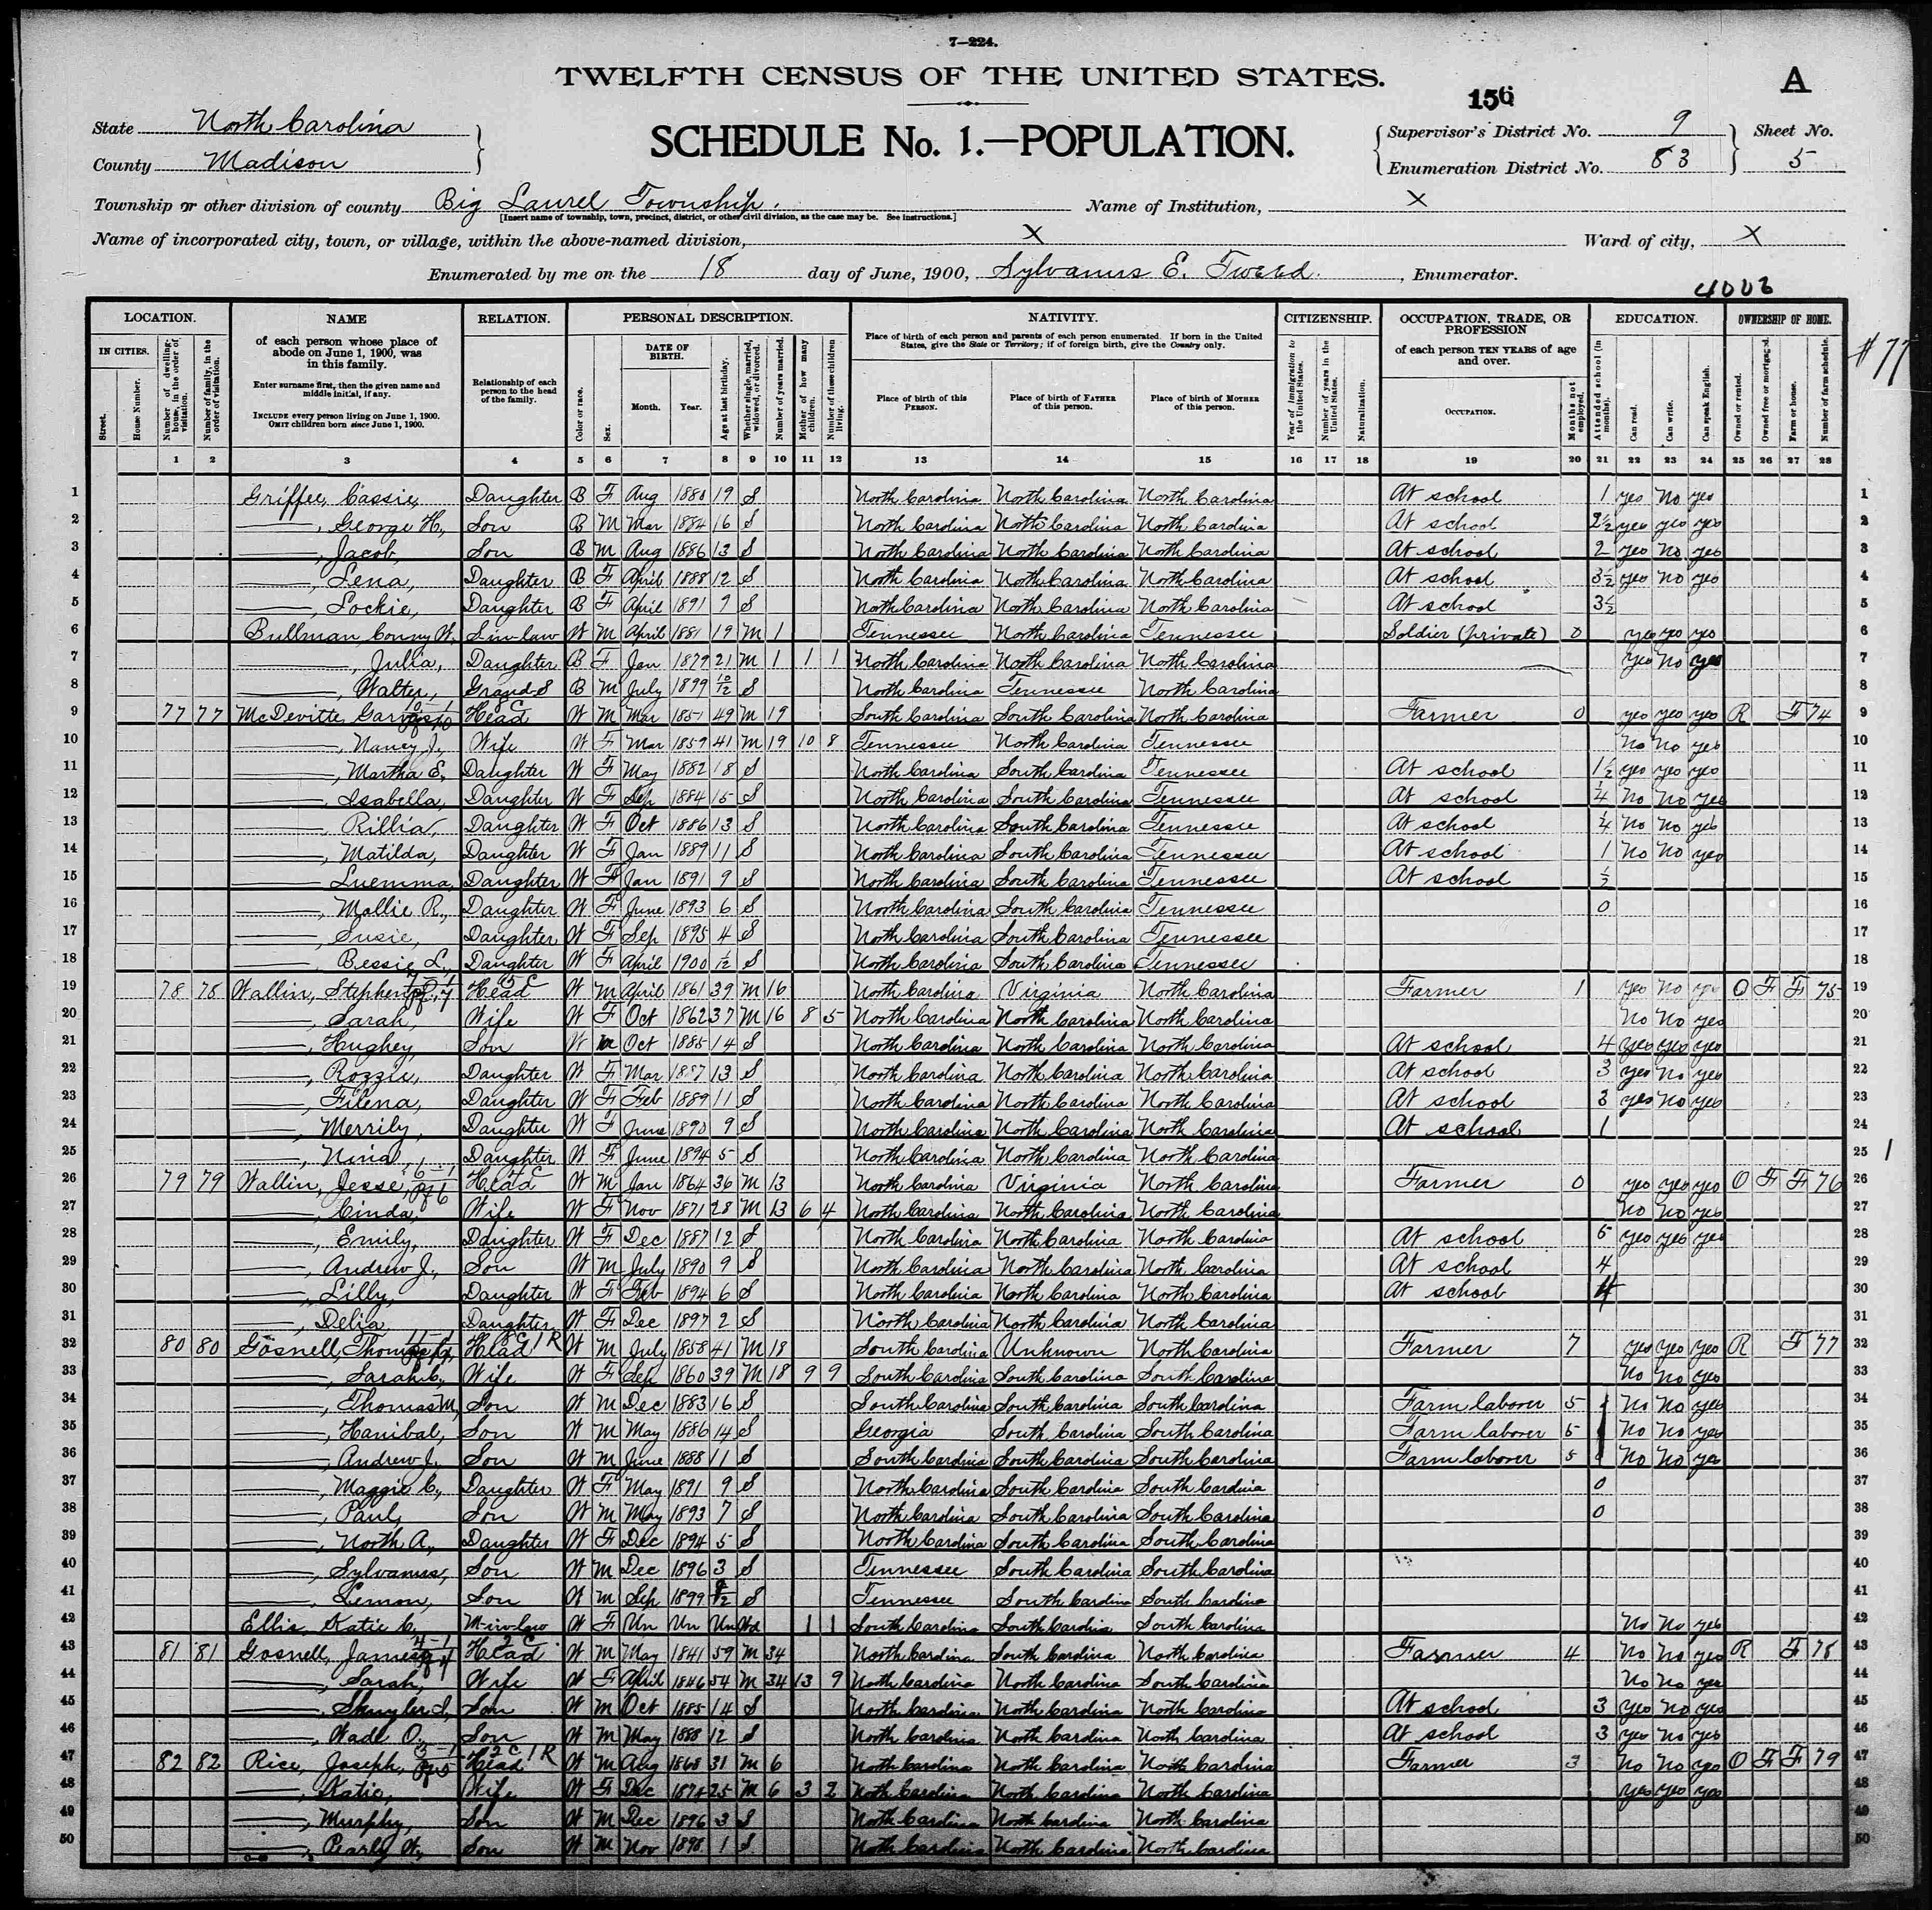 7—224.
TWELFTH CENSUS OF THE UNITED STATES.
A
156
State North Carolina
SCHEDULE No. 1.—POPULATION.
Supervisor's District No. 9 Sheet No.
County Madison
Enumeration District No. 83 5
Township or other division of county Big Laurel Township. Name of Institution, X
[Insert name of township, town, precinct, district, or other civil division, as the case may be. See instructions.]
Name of incorporated city, town, or village, within the above-named division, X Ward of city, X
Enumerated by me on the 18 day of June, 1900, Sylvanus E. Tweed. , Enumerator.
# 77
LOCATION. NAME RELATION. PERSONAL DESCRIPTION. NATIVITY. CITIZENSHIP. OCCUPATION, TRADE, OR PROFESSION EDUCATION. OWNERSHIP OF HOME.
IN CITIES. Street. House Number. Number of dwelling-house, in the order of visitation. Number of family, in the order of visitation.
of each person whose place of abode on June 1, 1900, was in this family.
Enter surname first, then the given name and middle initial, if any.
INCLUDE every person living on June 1, 1900. OMIT children born since June 1, 1900.
Relationship of each person to the head of the family.
Color or race. Sex. DATE OF BIRTH. Month. Year. Age at last birthday. Whether single, married, widowed, or divorced. Number of years married. Mother of how many children. Number of these children living.
Place of birth of each person and parents of each person enumerated. If born in the United States, give the State or Territory; if of foreign birth, give the Country only.
Place of birth of this PERSON. Place of birth of FATHER of this person. Place of birth of MOTHER of this person.
Year of immigration to the United States. Number of years in the United States. Naturalization.
of each person TEN YEARS of age and over.
OCCUPATION. Months not employed. Attended school (in months). Can read. Can write. Can speak English. Owned or rented. Owned free or mortgaged. Farm or house. Number of farm schedule.
1 2 3 4 5 6 7 8 9 10 11 12 13 14 15 16 17 18 19 20 21 22 23 24 25 26 27 28
1 Griffee, Cassie, Daughter B F Aug 1880 19 S North Carolina North Carolina North Carolina At school 1 yes No yes 1
2 —, George H., Son B M Mar 1884 16 S North Carolina North Carolina North Carolina At school 2½ yes yes yes 2
3 —, Jacob, Son B M Aug 1886 13 S North Carolina North Carolina North Carolina At school 2 yes No yes 3
4 —, Lena, Daughter B F April 1888 12 S North Carolina North Carolina North Carolina At school 3½ yes No yes 4
5 —, Lockie, Daughter B F April 1891 9 S North Carolina North Carolina North Carolina At school 3½ 5
6 Bullman, W. S-in-law W M April 1881 19 M 1 Tennessee North Carolina Tennessee Soldier (private) 0 yes yes yes 6
7 —, Julia, Daughter B F Jan 1879 21 M 1 1 1 North Carolina North Carolina North Carolina yes No yes 7
8 —, Walter, Grand S B M July 1899 10/12 S North Carolina Tennessee North Carolina 8
9 77 77 McDevitte, Head W M Mar 1851 49 M 19 South Carolina South Carolina North Carolina Farmer 0 yes yes yes R F 74 9
10 —, Nancy J., Wife W F Mar 1859 41 M 19 10 8 Tennessee North Carolina Tennessee No No yes 10
11 —, Martha E, Daughter W F May 1882 18 S North Carolina South Carolina Tennessee At school 1½ yes yes yes 11
12 —, Isabella, Daughter W F Sep 1884 15 S North Carolina South Carolina Tennessee At school ¼ No No yes 12
13 —, Rillia, Daughter W F Oct 1886 13 S North Carolina South Carolina Tennessee At school ¼ No No yes 13
14 —, Matilda, Daughter W F Jan 1889 11 S North Carolina South Carolina Tennessee At school 1 No No yes 14
15 — Luemma, Daughter W F Jan 1891 9 S North Carolina South Carolina Tennessee At school ½ 15
16 —, Mollie R., Daughter W F June 1893 6 S North Carolina South Carolina Tennessee 0 16
17 —, Susie, Daughter W F Sep 1895 4 S North Carolina South Carolina Tennessee 17
18 —, Bessie L., Daughter W F April 1900 1/12 S North Carolina South Carolina Tennessee 18
19 78 78 Wallin, Stephen Head W M April 1861 39 M 16 North Carolina Virginia North Carolina Farmer 1 yes No yes O F F 75 19
20 —, Sarah, Wife W F Oct 1862 37 M 16 8 5 North Carolina North Carolina North Carolina No No yes 20
21 —, Hughey, Son W M Oct 1885 14 S North Carolina North Carolina North Carolina At school 4 yes yes yes 21
22 —, Rozzie, Daughter W F Mar 1887 13 S North Carolina North Carolina North Carolina At school 3 yes No yes 22
23 —, Filena, Daughter W F Feb 1889 11 S North Carolina North Carolina North Carolina At school 3 yes No yes 23
24 —, Merrily, Daughter W F June 1890 9 S North Carolina North Carolina North Carolina At school 1 24
25 —, Nina, Daughter W F June 1894 5 S North Carolina North Carolina North Carolina 25
26 79 79 Wallin, Jesse, Head W M Jan 1864 36 M 13 North Carolina Virginia North Carolina Farmer 0 yes yes yes O F F 76 26
27 —, Cinda, Wife W F Nov 1871 28 M 13 6 4 North Carolina North Carolina North Carolina No No yes 27
28 —, Emily, Daughter W F Dec 1887 12 S North Carolina North Carolina North Carolina At school 5 yes yes yes 28
29 —, Andrew J., Son W M July 1890 9 S North Carolina North Carolina North Carolina At school 4 29
30 —, Lilly, Daughter W F Feb 1894 6 S North Carolina North Carolina North Carolina At school 4 30
31 —, Delia, Daughter W F Dec 1897 2 S North Carolina North Carolina North Carolina 31
32 80 80 Gosnell, Head W M July 1858 41 M 18 South Carolina Unknown North Carolina Farmer 7 yes yes yes R F 77 32
33 —, Sarah C., Wife W F Sep 1860 39 M 18 9 9 South Carolina South Carolina South Carolina No No yes 33
34 —, Thomas M, Son W M Dec 1883 16 S South Carolina South Carolina South Carolina Farm laborer 5 No No yes 34
35 —, Hanibal, Son W M May 1886 14 S Georgia South Carolina South Carolina Farm laborer 5 No No yes 35
36 —, Andrew J., Son W M June 1888 11 S South Carolina South Carolina South Carolina Farm laborer 5 No No yes 36
37 —, Maggie C., Daughter W F May 1891 9 S North Carolina South Carolina South Carolina 0 37
38 —, Paul, Son W M May 1893 7 S North Carolina South Carolina South Carolina 0 38
39 —, North A., Daughter W F Dec 1894 5 S North Carolina South Carolina South Carolina 39
40 —, Sylvanus, Son W M Dec 1896 3 S Tennessee South Carolina South Carolina 40
41 —, Lemon, Son W M Sep 1899 S Tennessee South Carolina South Carolina 41
42 Ellis, Katie C. M-in-law W F Un Un Un Wd 1 1 South Carolina South Carolina South Carolina No No yes 42
43 81 81 Gosnell, James Head W M May 1841 59 M 34 North Carolina South Carolina North Carolina Farmer 4 No No yes R F 78 43
44 —, Sarah, Wife W F April 1846 54 M 34 13 9 North Carolina North Carolina South Carolina No No yes 44
45 —, Son W M Oct 1885 14 S North Carolina North Carolina North Carolina At school 3 yes No yes 45
46 —, Wade O., Son W M May 1888 12 S North Carolina North Carolina North Carolina At school 3 yes No yes 46
47 82 82 Rice, Joseph, Head W M Aug 1868 31 M 6 North Carolina North Carolina North Carolina Farmer 3 No No yes O F F 79 47
48 —, Katie, Wife W F Dec 1874 25 M 6 3 2 North Carolina North Carolina North Carolina yes yes yes 48
49 —, Murphy, Son W M Dec 1896 3 S North Carolina North Carolina North Carolina 49
50 —, Pearly W., Son W M Nov 1898 1 S North Carolina North Carolina North Carolina 50